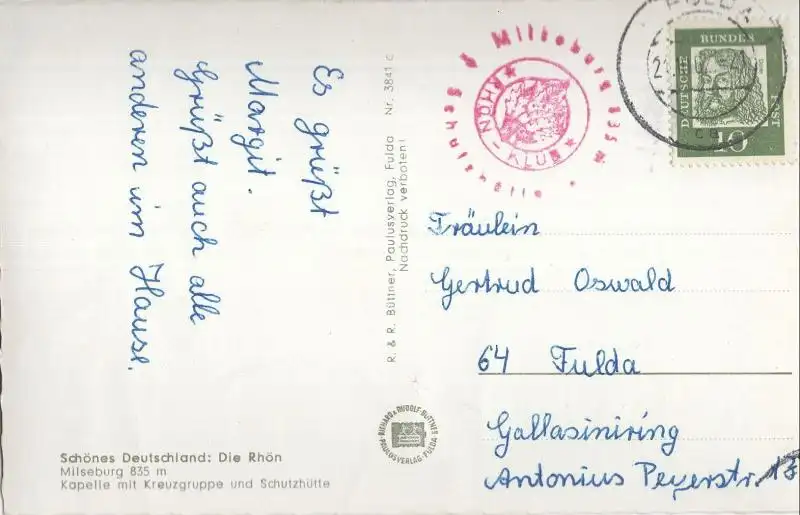 Es grüßt
Margit.
Grüßt auch alle
anderen im Hause.
Schönes Deutschland: Die Rhön
Milseburg 835 m
Kapelle mit Kreuzgruppe und Schutzhütte
R. & R. Büttner, Paulusverlag, Fulda Nr. 3841 c
Nachdruck verboten!
RICHARD & RUDOLF BÜTTNER
PAULUSVERLAG · FULDA
Milseburg 835 m
Schutzhütte
RHÖN-KLUB
FULDA
DEUTSCHE BUNDESPOST
10
Fräulein
Gertrud Oswald
64 Fulda
Gallasiniring
Antonius Peyerstr. 13